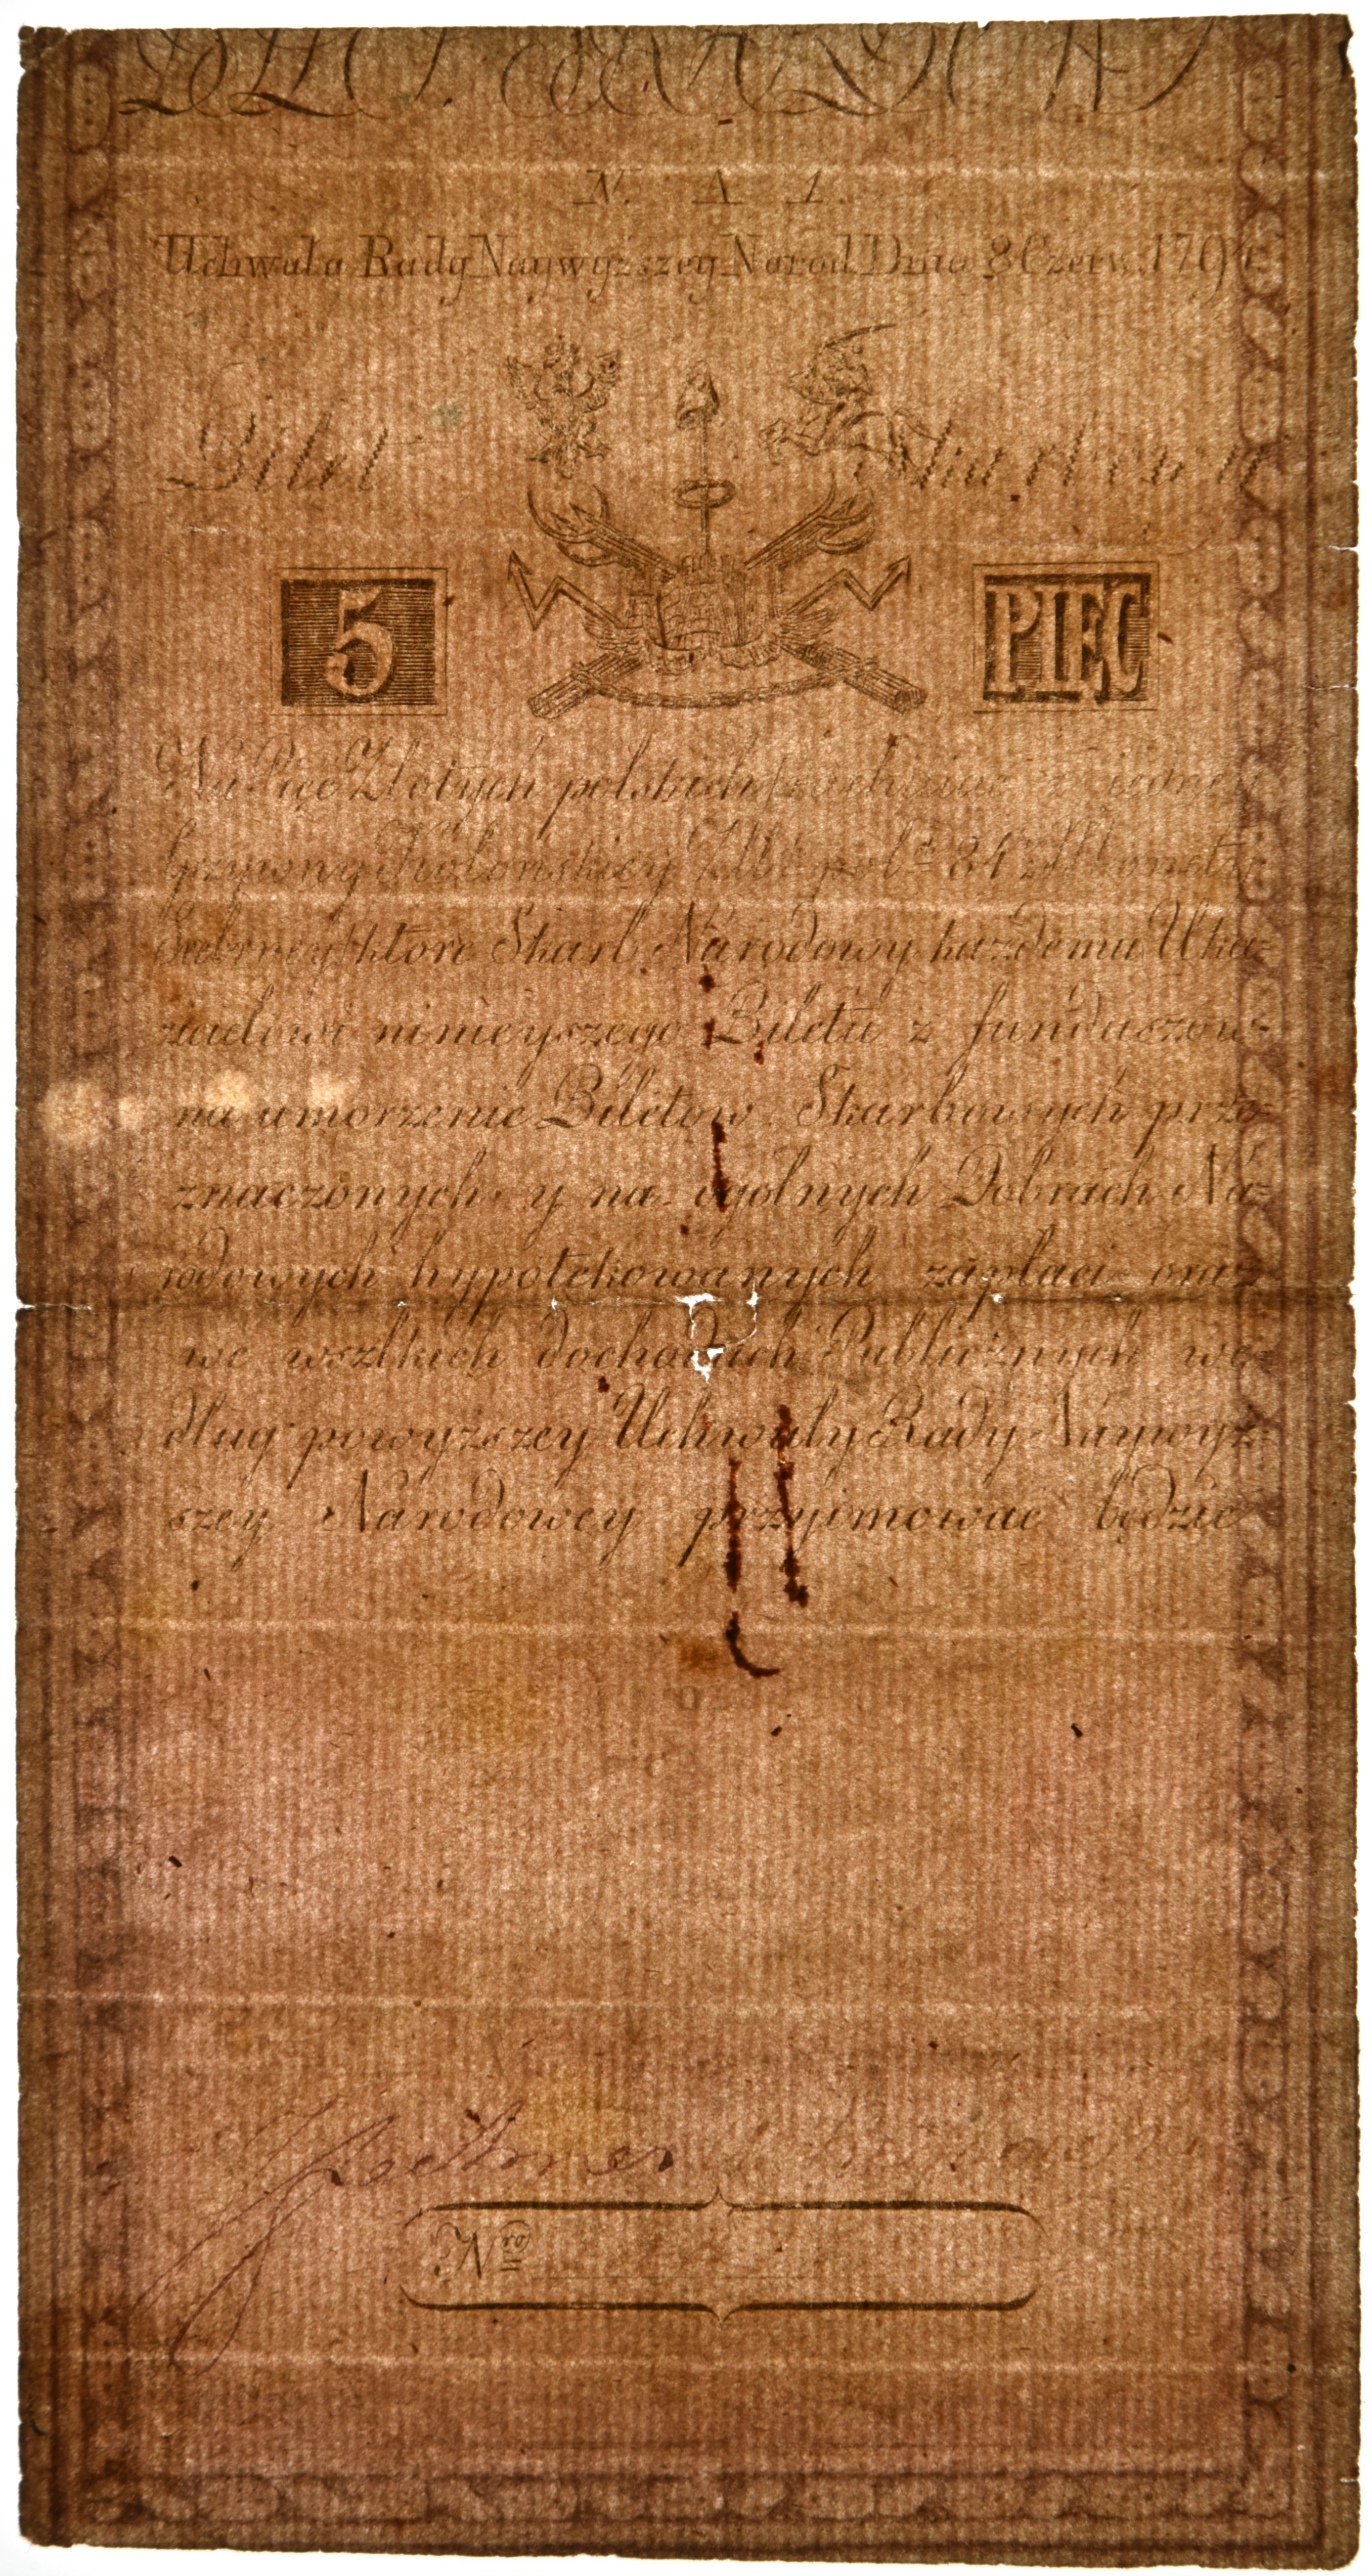 N. A 1.
Uchwała Rady Naywyzszey Narod. Dnia 8 Czerw. 1794
Bilet Skarbowy
5 PIĘC
Na Pięc Złotych polskich rachuiąc z iedney
grzywny Kolonskiey Zł. pol. 84 z Monety
Srebrney ktore Skarb Narodowy kazdemu Uka-
zicielowi ninieyszego Biletu z funduszow
na umorzenie Biletow Skarbowych prze-
znaczonych y na ogolnych Dobrach Na-
rodowych hypotekowanych zapłaci oraz
we wszlkich dochodach Publicznych we-
dług powyzszey Uchwały Rady Naywyz-
szey Narodowey przyimowac będzie
N<sup>ro</sup>